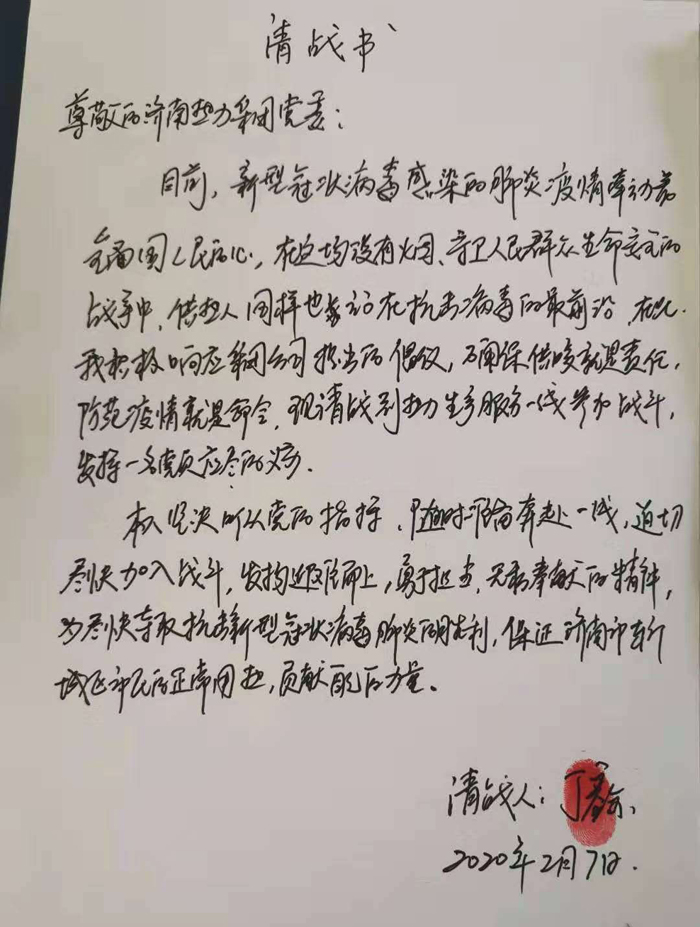 请战书
尊敬的济南热力集团党委：
目前，新型冠状病毒感染的肺炎疫情牵动着
全国人民的心，在这场没有火烟、守卫人民群众生命安全的
战争中，供热人同样也在抗击病毒的最前沿，在此
我积极响应集团公司提出的倡议，确保供暖就是责任，
防范疫情就是命令，现请战到热力生产服务一线参加战斗，
发挥一名党员应尽的义务。
本人坚决听从党的指挥，随时准备奔赴一线，迫切
尽快加入战斗，发扬迎难而上，勇于担当，无私奉献的精神，
为尽快夺取抗击新型冠状病毒肺炎的胜利，保证济南市东部
城区市民的正常用热，贡献自己的力量。
请战人：丁
2020年2月7日.